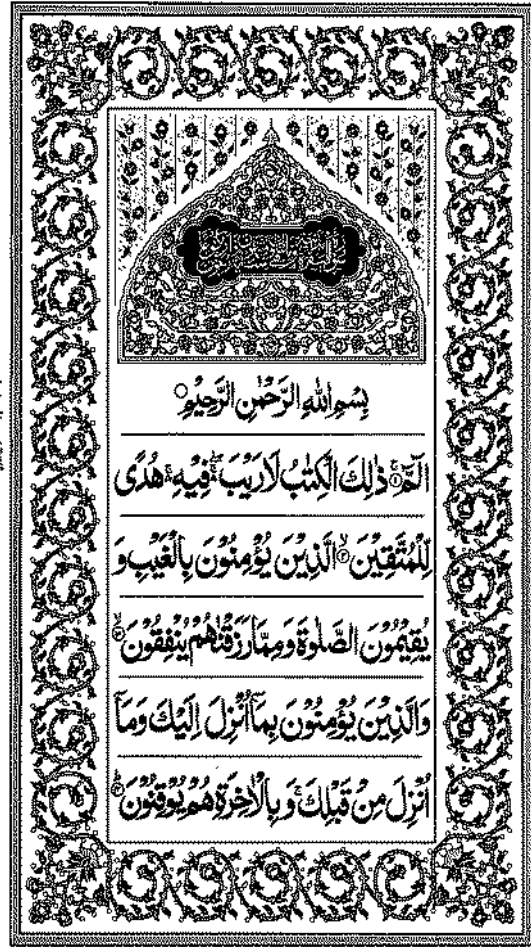 بِسْمِ اللّٰهِ الرَّحْمٰنِ الرَّحِيْمِ
الٓمّٓ ۚ ذٰلِكَ الْكِتٰبُ لَا رَيْبَ ۛ فِيْهِ ۛ هُدًى
لِّلْمُتَّقِيْنَ ۙ الَّذِيْنَ يُؤْمِنُوْنَ بِالْغَيْبِ وَ
يُقِيْمُوْنَ الصَّلٰوةَ وَمِمَّا رَزَقْنٰهُمْ يُنْفِقُوْنَ ۙ
وَالَّذِيْنَ يُؤْمِنُوْنَ بِمَآ اُنْزِلَ اِلَيْكَ وَمَآ
اُنْزِلَ مِنْ قَبْلِكَ ۚ وَبِالْاٰخِرَةِ هُمْ يُوْقِنُوْنَ ؕ